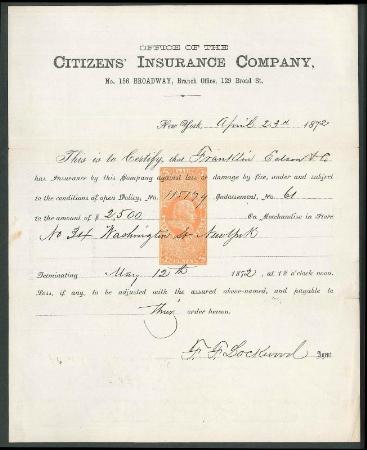 OFFICE OF THE
CITIZENS' INSURANCE COMPANY,
No. 156 BROADWAY, Branch Office, 129 Broad St.
New York, April 23rd 1872
This is to Certify, that Franklin Edson & Co
has Insurance by this Company against loss or damage by fire, under and subject
to the conditions of open Policy, No. Endorsement, No. 61
to the amount of $ 2500 On Merchandise in Store
No 34 Washington St. New York
Terminating May 12th 1872, at 12 o'clock noon.
Loss, if any, to be adjusted with the assured above-named, and payable to
Their order hereon.
F. F. Lockwood Agent